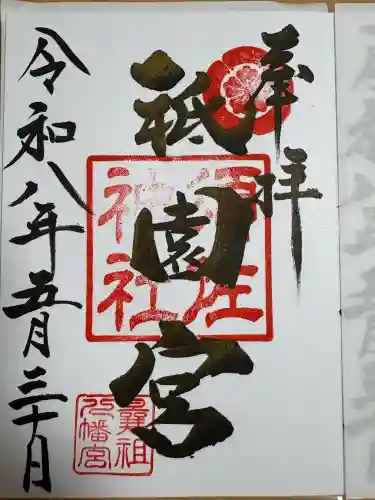 奉拝
祇園宮
須佐神社
令和八年五月三十日
八幡宮